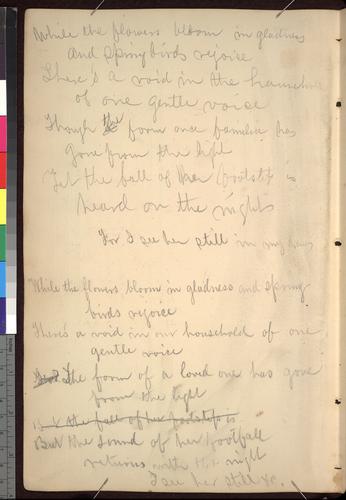 While the flowers bloom in gladness
and spring birds rejoice
There's a void in the household
of one gentle voice
Though the form once familiar has
gone from the light
Yet the fall of her footstep is
heard on the night
For I see her still in my
While the flowers bloom in gladness and spring
birds rejoice
There's a void in our household of one
gentle voice
the form of a loved one has gone
from the light
the fall of her footstep is
But the sound of her footfall
returns with the night
I see her still &c.